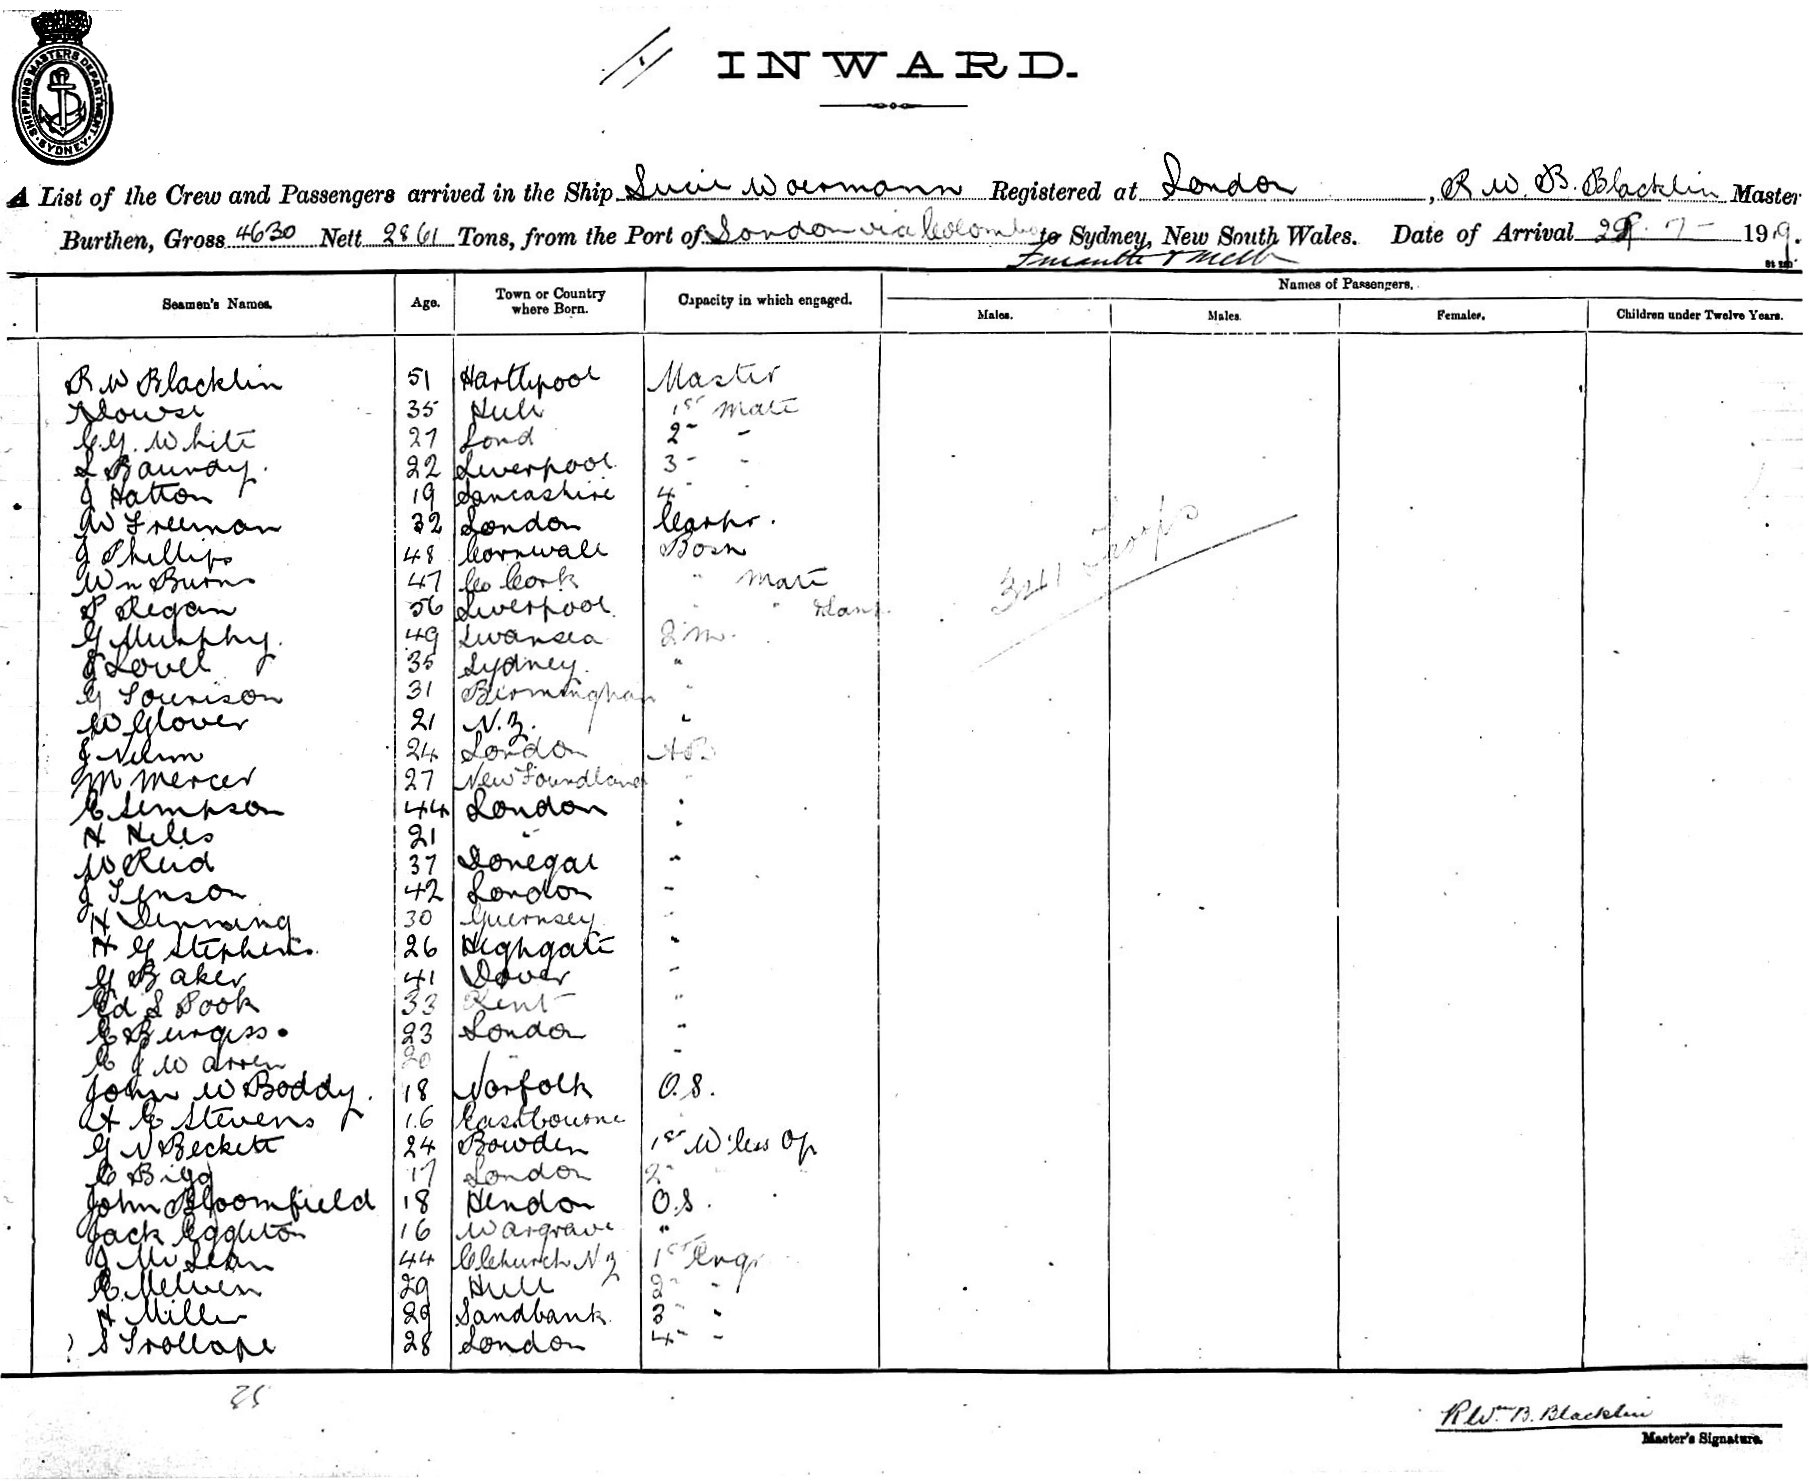 SHIPPING MASTERS DEPARTMENT
SYDNEY
INWARD.
A List of the Crew and Passengers arrived in the Ship Lucie Woermann Registered at London, R W. B. Blacklin Master
Burthen, Gross 4630 Nett 2861 Tons, from the Port of London via Colombo to Sydney, New South Wales. Date of Arrival 7 - 1919.
Fremantle & Melb
Seamen's Names. Age. Town or Country where Born. Capacity in which engaged. Names of Passengers.
Males. Males. Females. Children under Twelve Years.
R W Blacklin 51 Hartlepool Master
35 Hull 1st Mate
C G. White 27 Lond 2 " -
L Baundy. 22 Liverpool 3 - -
J Hatton 19 Lancashire 4 - -
W Freeman 32 London Carpr.
J Phillips 48 Cornwall Bosn
Wm Burns 47 Co Cork " Mate
P Regan 56 Liverpool " "
G Murphy. 49 Swansea 2 M.
J Lovel 35 Sydney. "
G 31 Birmingham "
W Glover 21 N.Z. "
J 24 London AB
M Mercer 27 New Foundland "
C Simpson 44 London "
H Hiles 21 " "
W Reid 37 Donegal "
J Tenson 42 London "
H Denning 30 Guernsey "
H G Stephens. 26 Highgate "
G Baker 41 Dover "
Ed S Pook 33 Kent "
E Burgess. 23 London "
C J Warren 20 " "
John W Boddy. 18 Norfolk O.S.
A E Stevens 16 Eastbourne "
G N Beckett 24 Bowden 1st W'less Op
C Bigg 17 London 2 " "
John Bloomfield 18 Hendon O.S.
Jack Eggleton 16 Wargrave "
J McLean 44 C'church N Z 1st Engr
C. Melven 29 Hull 2 " "
H Miller 29 Sandbank 3 " "
S Trollope 28 London 4 " -
3241 Troops
35
R Wm B. Blacklin
Master's Signature.